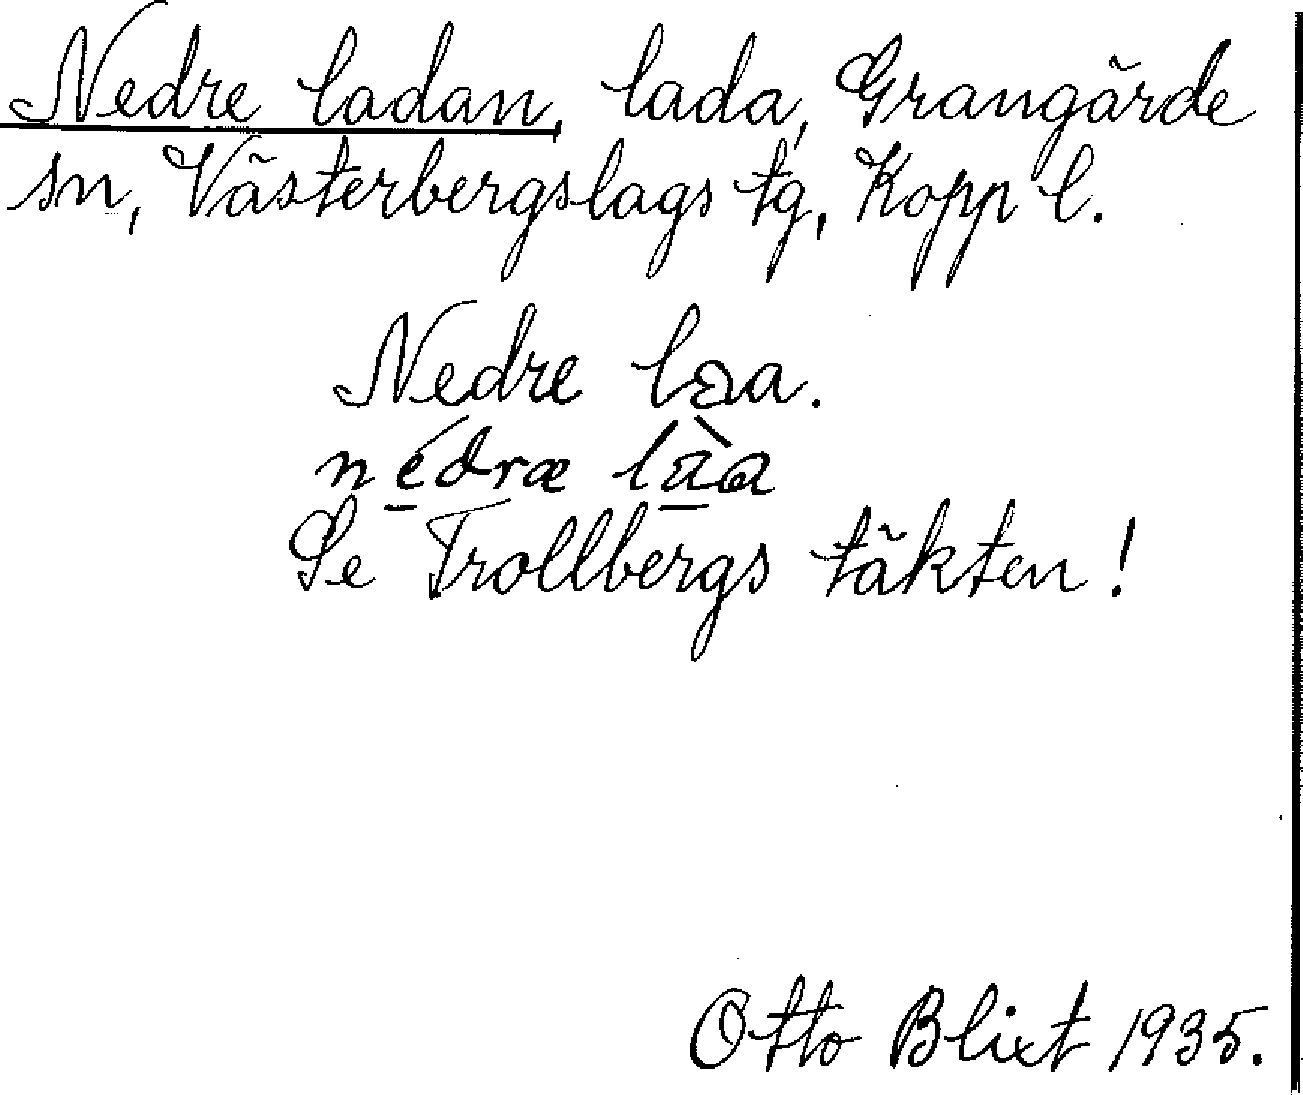 Nedre ladan, lada, Grangärde
sn, Västerbergslags tg, Kopp l.
Nedre laa.
nédræ làa
Se Trollbergs täkten!
Otto Blixt 1935.